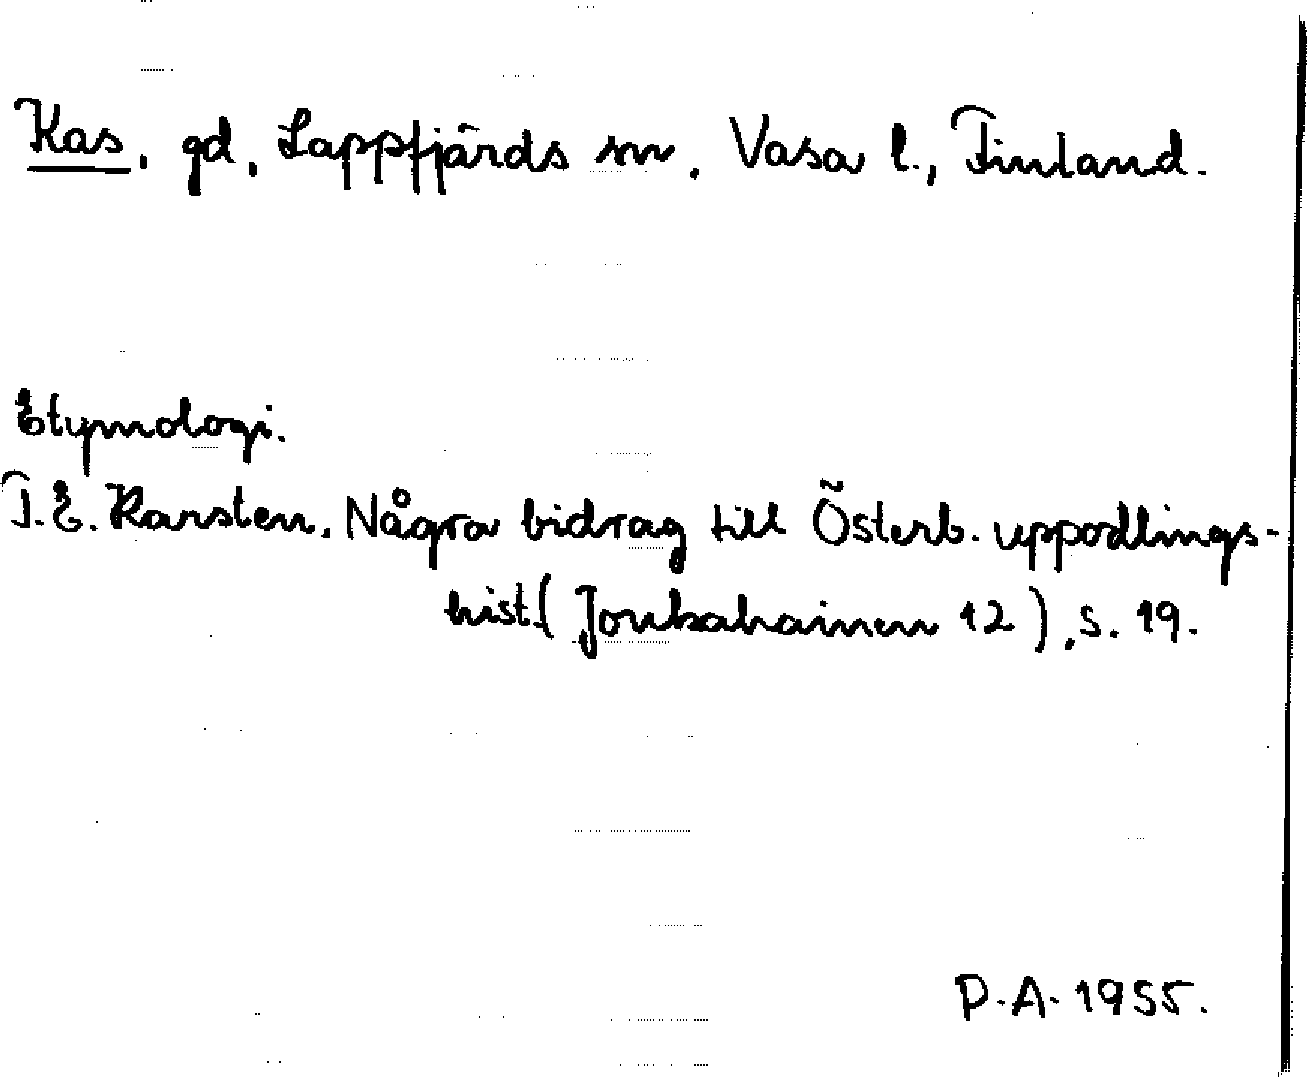 Kas, gd, Lappfjärds sn, Vasa l., Finland.
Etymologi.
T.E. Karsten, Några bidrag till Österb. uppodlings-
hist. (Joukahainen 12), s. 19.
P.A. 1955.